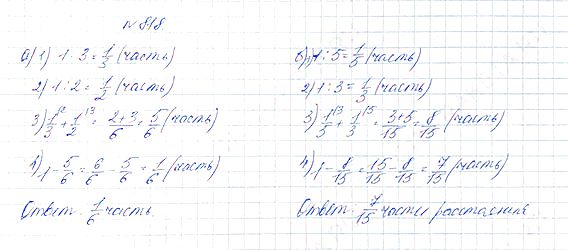 № 818
а) 1) 1 : 3 = 1/3 (часть)
2) 1 : 2 = 1/2 (часть)
3) 1/3 + 1/2 = (2+3)/6 = 5/6 (часть)
4) 1 - 5/6 = 6/6 - 5/6 = 1/6 (часть)
Ответ: 1/6 часть.
б) 1) 1 : 5 = 1/5 (часть)
2) 1 : 3 = 1/3 (часть)
3) 1/5 + 1/3 = (3+5)/15 = 8/15 (часть)
4) 1 - 8/15 = 15/15 - 8/15 = 7/15 (часть)
Ответ: 7/15 части расстояния